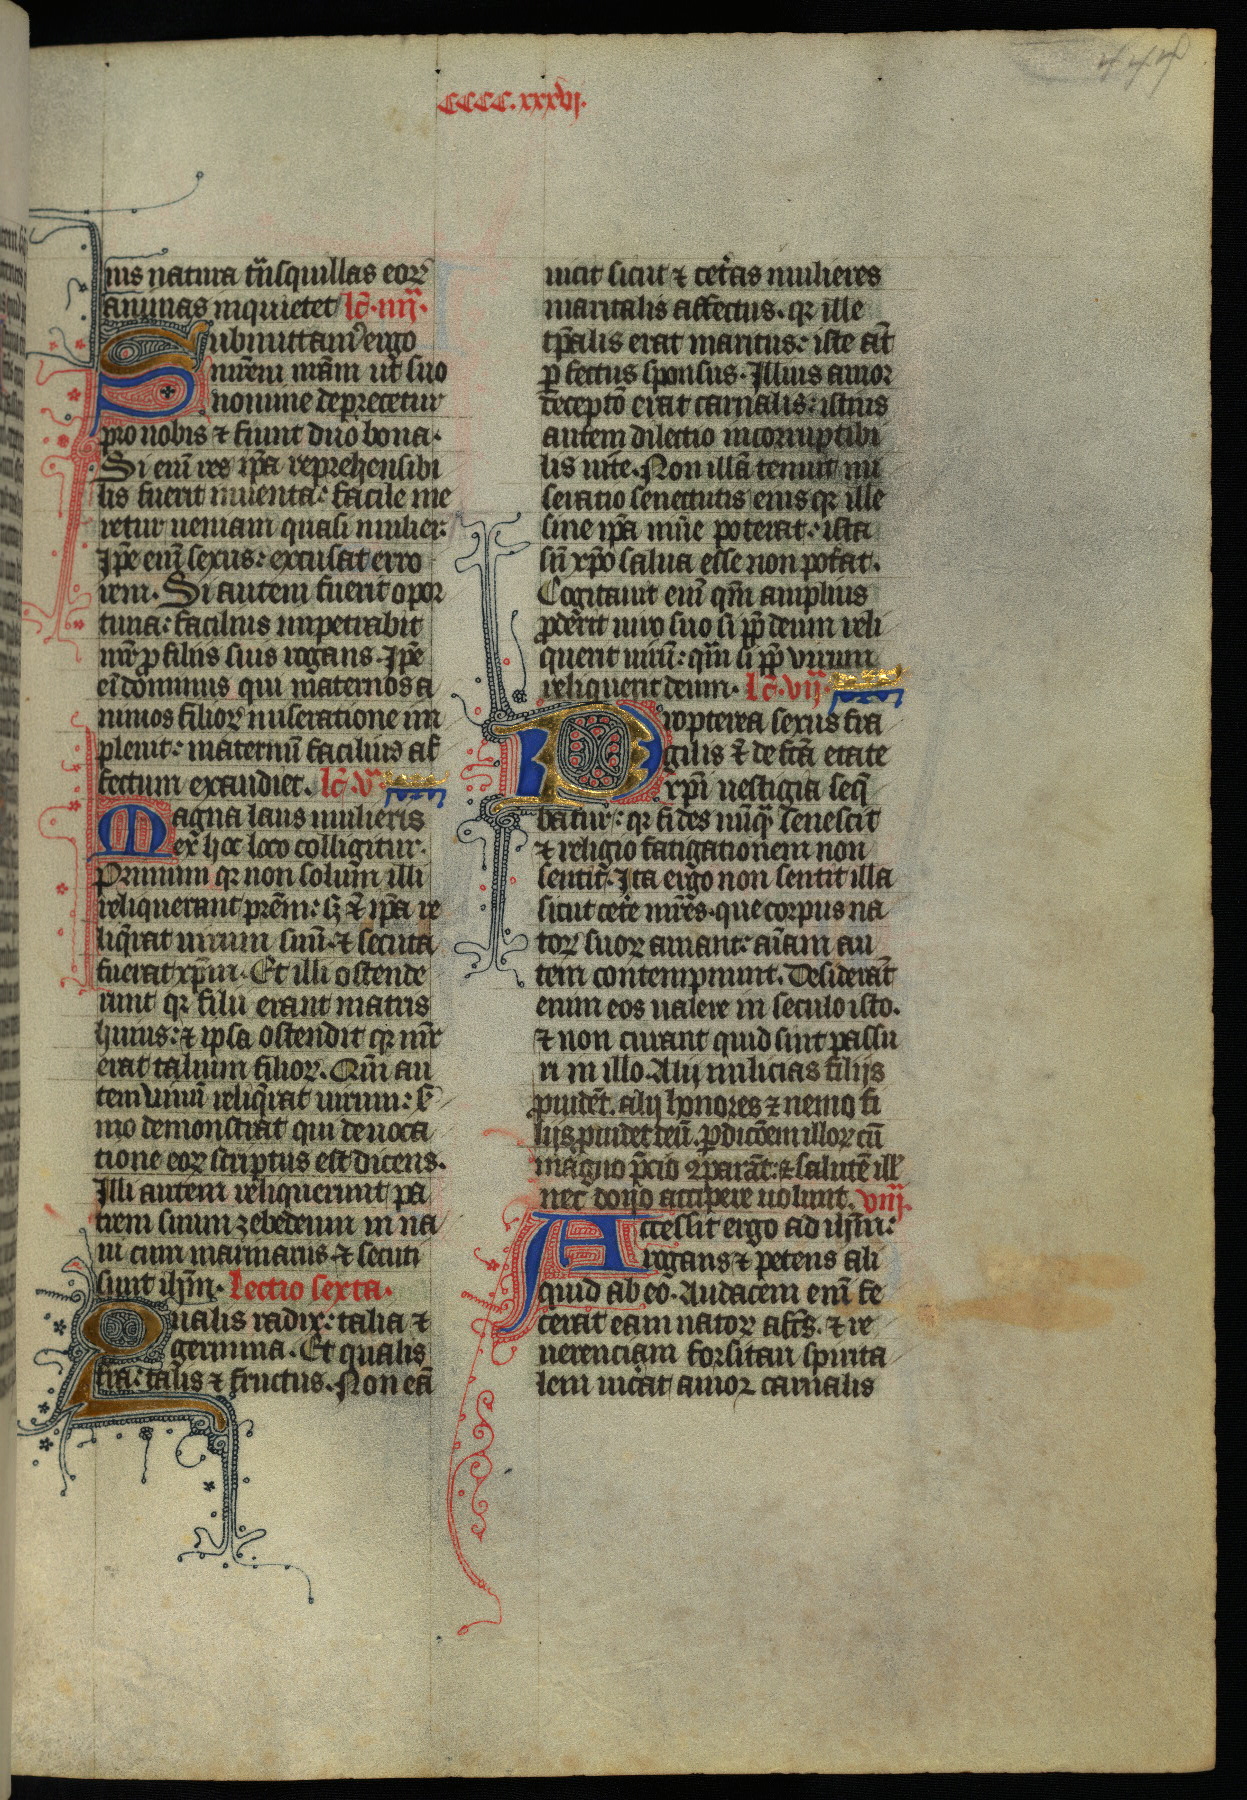 CCCC.xxxvi.
nis natura tn̄squillas eoꝝ
animas inquietet lc̄.iiij.
Submittam᷒ ergo
mr̄em nr̄am ut suo
nomine deprecetur
pro nobis ⁊ fiunt duo bona.
Si eni᷒ res ip̄a reprehensibi
lis fuerit inuenta: facile me
retur ueniam quasi mulier.
Ip̄e eni᷒ sexus: excusat erro
rem. Si autem fuerit opor
tuna: facilius impetrabit
mr̄ ꝓ filiis suis rogans. Ip̄e
ei̅ dominus qui maternos a
nimos filioꝝ miseratione im
pleuit: maternū facilius af
fectum exaudiet. lc̄.v.
Magna laus mulieris
ex hoc loco colligitur.
Primum qꝛ non solum illi
reliquerant pr̄em: sꝫ ⁊ ip̄a re
liq̄rat uirum suū. ⁊ secuta
fuerat xp̄m. Et illi ostende
runt qꝛ filii erant matris
huius: ⁊ ipsa ostendit qꝛ mr̄
erat talium filioꝝ. Qm̄ au
tem uiuū reliq̄rat uirum: s̄
mo demonstrat qui de uoca
tione eoꝝ scriptus est dicens.
Illi autem reliquerunt pa
trem suum zebedeum in na
ui cum marinariis ⁊ secuti
sunt ihm̄. Lectio sexta.
Qualis radix: talia ⁊
germina. Et qualis
tra: talis ⁊ fructus. Non eā
uicit sicut ⁊ cet̄as mulieres
maritalis affectus. qꝛ ille
tp̄alis erat maritus: iste aūt
ꝑfectus sponsus. Illius amor
receptō erat carnalis: istius
autem dilectio incorruptibi
lis uite. Non illā tenuit mi
seratio senectutis eius qꝛ ille
sine ip̄a uiu̅e poterat: ista
sn̄ xp̄o salua esse non pot̄at.
Cogitauit eni̅ qm̄ amplius
ꝓderit uiro suo si ꝓp̄ deum reli
querit uirū: qm̄ si ꝓp̄ virum
reliquerit deum. lc̄.vij.
Propterea sexus fra
gilis ⁊ defc̄a etate
xp̄i uestigia seq̄
batur: qꝛ fides nūq̄ senescit
⁊ religio fatigationem non
sentit. Ita ergo non sentit illa
sicut cet̄e mr̄es. que corpus na
toꝝ suoꝝ amant: aīam au
tem contempnunt. Desiderāt
enim eos ualere in seculo isto.
⁊ non curant quid sint passu
ri in illo. Alij milicias filijs
ꝓuidēt. alij honores ⁊ nemo fi
lijs ꝓuidet deū. ꝑdic̄oem illoꝝ cū
magno p̄cio ꝯparāt: ⁊ salutē ill᷒
nec dono accipere uolunt. viij.
Accessit ergo ad ihm̄:
rogans ⁊ petens ali
quid ab eo. Audacem eni̅ fe
cerat eam natoꝝ affc̄s. ⁊ re
uerenciam forsitan spirita
lem uic̄at amor carnalis